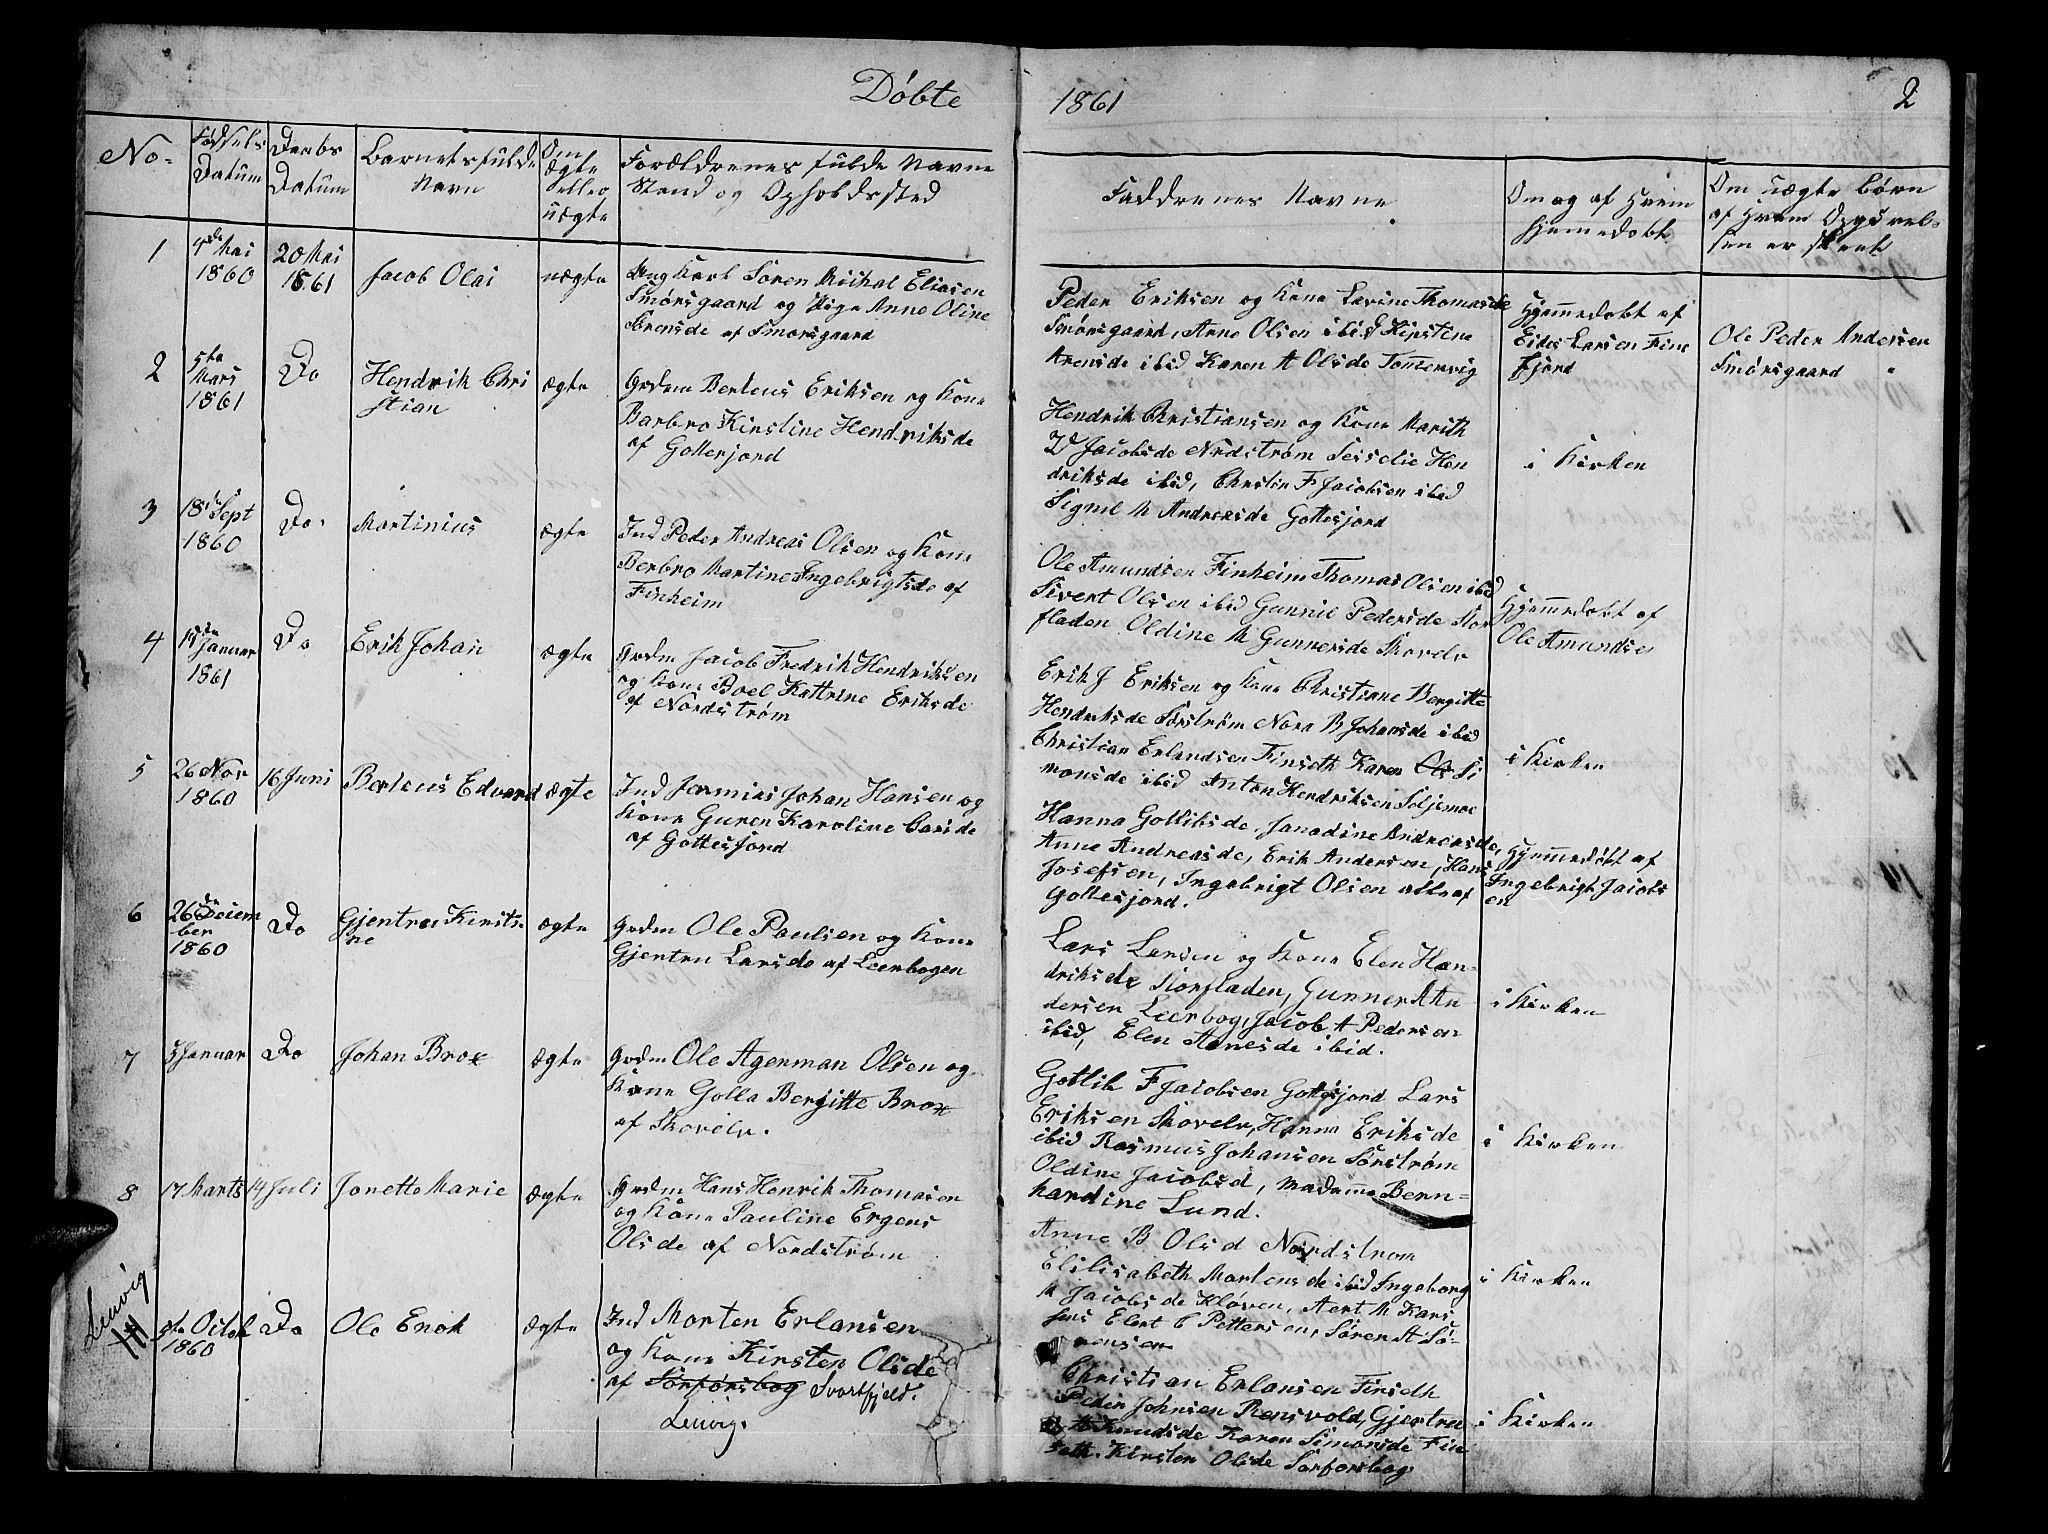 Døbte
1861
2
No.
Fødsels Datum
Daabs Datum
Barnets fulde Navn
Om Ægte eller uægte
Forældrenes fulde Navne Stand og Opholdssted
Faddrenes Navne
Om og af Hvem Hjemedøbt
Om uægte Børn af Hvem Opgivelsen er skeet
1
4de Mai 1860
20 Mai 1861
Jacob Olai
uægte
Ung Karl Søren Mikal Eliasen
Smørsgaard og Pige Anne Oline
Sørensde af Smørsgaard
Peder Eriksen og Kone Lavine Thomasde
Smørsgaard, Arne Olsen ibid Kirstine
Arensde ibid Karen A Olsde Tommervig
Hjemmedøbt af
Larsen Fine
fjord
Ole Peder Andersen
Smørsgaard
2
5te Mars 1861
Do
Hendrik Chri
stian
ægte
Grdm Berteus Eriksen og Kone
Barbro Kirstine Hendriksde
af Gottesjord
Hendrik Christiansen og Kone Marith
Jacobsde Nordstrøm Sesselie Hen
driksde ibid, Christen F Jacobsen ibid
Signe M Andreasde Gottesjord
i Kirken
3
18de Sept 1860
Do
Martinius
ægte
Ind Peder Andreas Olsen og Kone
Berbro Martine Ingebrigtsde af
Finheim
Ole Amundsen Finheim Thomas Olsen ibid
Sivert Olsen ibid Gunnil Pedersde Stor
fladen Oldine M Gunnersde Skovelv
Hjemmedøbt af
Ole Amundsen
4
Januar 1861
Do
Erik Johan
ægte
Grdm Jacob Fredrik Hendriksen
og Kone Boel Kattrine Eriksde
af Nordstrøm
Erik J Eriksen og Kone Christiane Bergitte
Hendriksde Sørstrøm Nora B Johansde ibid
Christian Erlandsen Finseth Karen Si
monsde ibid Anton Hendriksen Seljemoe
i Kirken
5
26 Nov 1860
16 Juni
Berteus Edvard
ægte
Ind Jermias Johan Hansen og
Kone Guren Karoline Carsde
af Gottesjord
Hanna Gottlibsde, Janadine Andreasde,
Anne Andreasde, Erik Andersen, Hans
Josefsen, Ingebrigt Olsen alle af
Gottesjord.
Hjemmedøbt af
Ingebrigt Jacobs
en
6
26de Decem
ber
1860
Do
Gjentru Kirsti
ne
ægte
Grdm Ole Paulsen og Kone
Gjentru Larsde af Leerbogen
Lars Larsen og Kone Elen Hen-
driksde Storfladen, Gunner A An
dersen Leerbog, Jacob A Pedersen
ibid, Elen Arnesde ibid.
i Kirken
7
5 Januar
Do
Johan Brox
ægte
Grdm Ole Agenman Olsen og
Kone Golla Bergitte Brox
af Skovelv.
Gotlib F Jacobsen Gottesjord Lars
Eriksen Skovelv, Hanna Eriksde
ibid Rasmus Johansen Sørstrøm
Oldine Jacobsd, Madamme Bern-
hardine Lund.
i Kirken
8
17 Marts
14 Juli
Jonette Marie
ægte
Grdm Hans Henrik Thomasen
og Kone Pauline Ergens
Olsde af Nordstrøm
Anne B Olsd Nordstrøm
Elilisabeth Mortensde ibid Ingeborg
M Jacobsde Kløven, Aert M Kars
Elert C Pettersen, Søren A Sø-
rensen
i Kirken
Leuvig
5te Octob
1860
Do
Ole Enok
ægte
Ind Morten Erlansen
og Kone Kirsten Olsde
af Sørførsbog Svartfjeld.
Leuvig.
Christian Erlansen Finseth
Peder Johnsen Rensvold, Gjertru
A Knudsde Karen Simonsde Fin
seth. Kirsten Olsde Sørforsbog
i Kirken